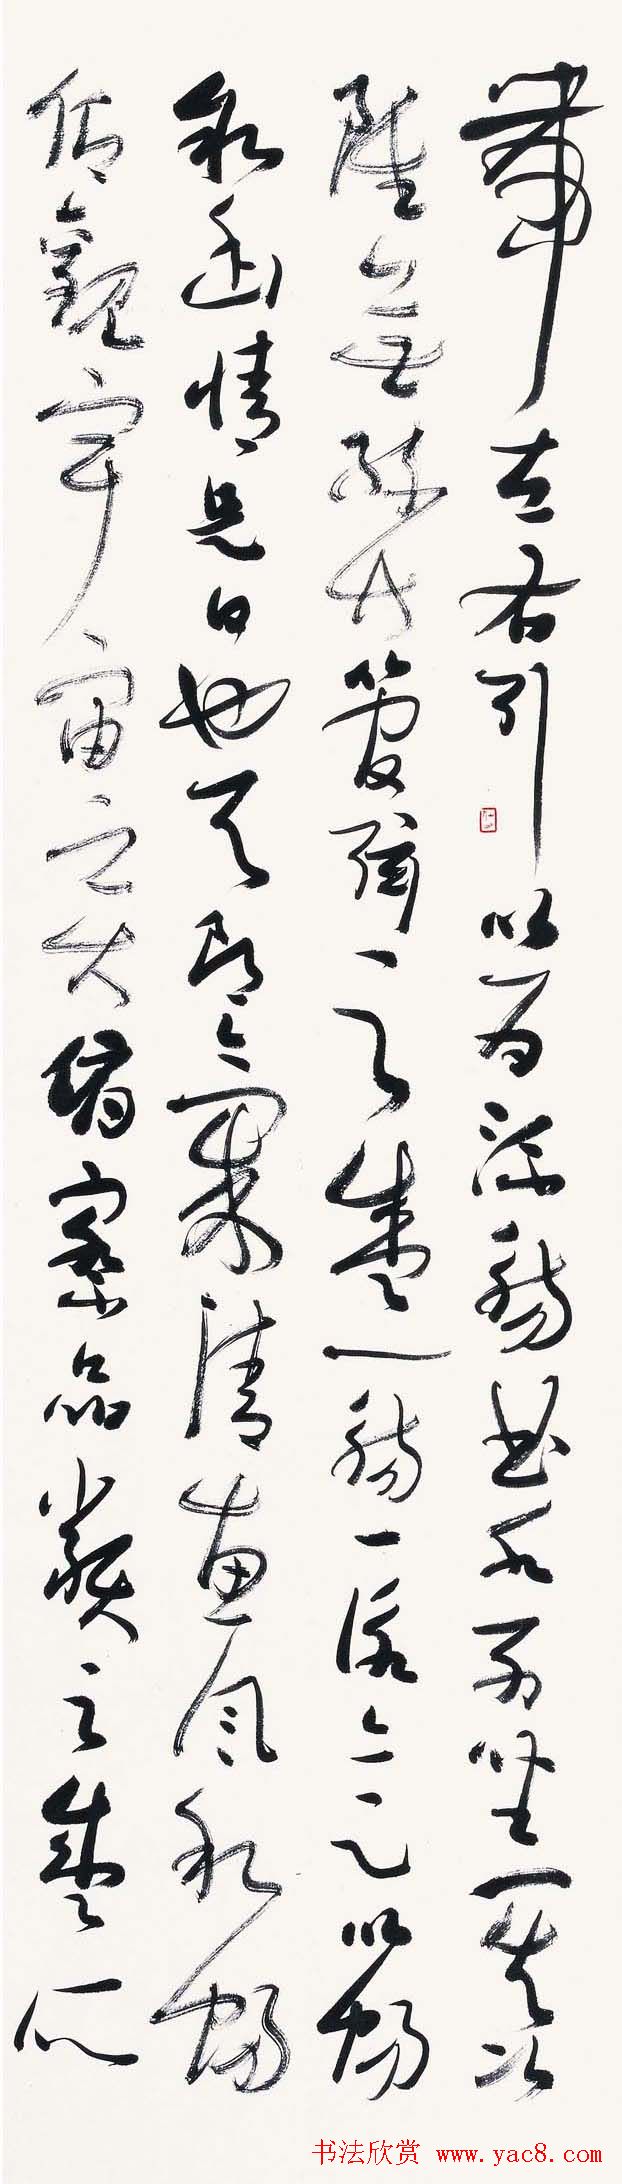 帶左右引以為流觴曲水列坐其次
雖無絲竹管弦之盛一觴一詠亦足以暢
敘幽情是日也天朗氣清惠風和暢
仰觀宇宙之大俯察品類之盛所
书法欣赏 www.yac8.com